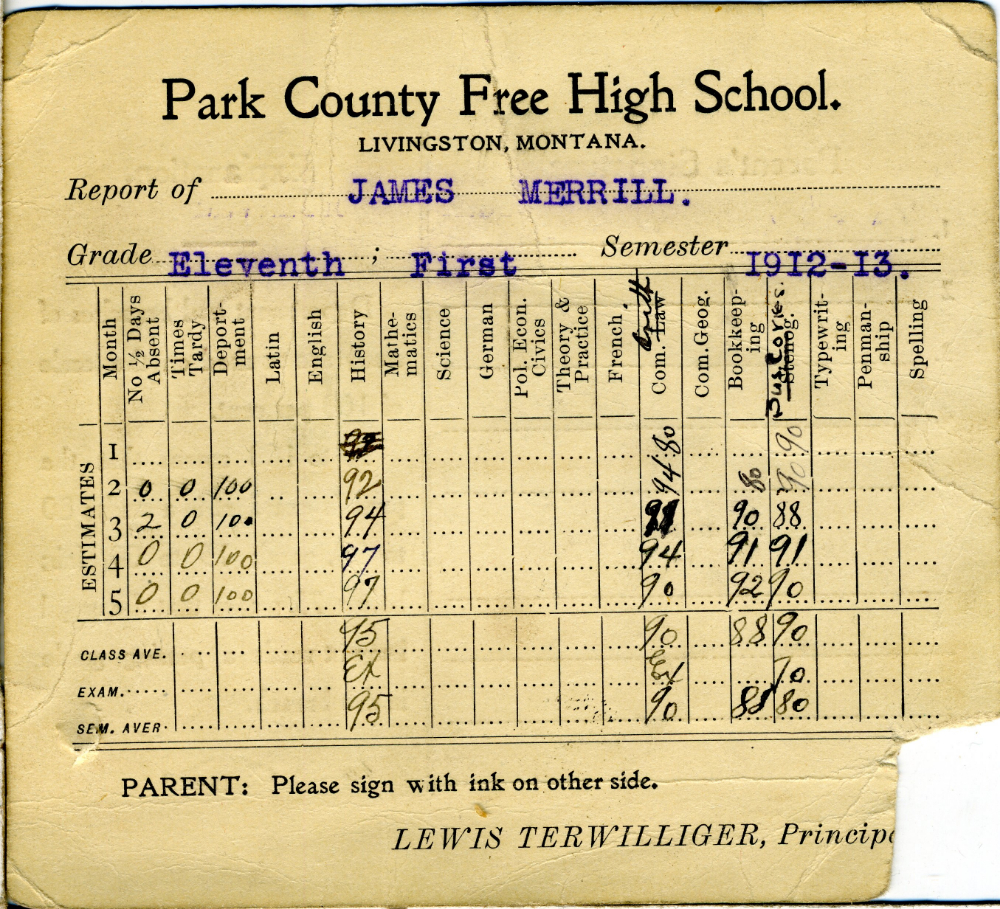 Park County Free High School.
LIVINGSTON, MONTANA.
Report of JAMES MERRILL.
Grade Eleventh ; First Semester 1912-13.
Month No ½ Days Absent Times Tardy Deport-ment Latin English History Mathe-matics Science German Pol. Econ. Civics Theory & Practice French Com. Law Arith Com. Geog. Bookkeep-ing Stenog. Typewrit-ing Penman-ship Spelling
ESTIMATES
1 80 90
2 0 0 100 92 94 80 90
3 2 0 100 94 90 88
4 0 0 100 97 94 91 91
5 0 0 100 97 90 92 90
CLASS AVE. 95 90 88 90
EXAM. Ex Ex 70
SEM. AVER 95 90 88 80
PARENT: Please sign with ink on other side.
LEWIS TERWILLIGER, Principa